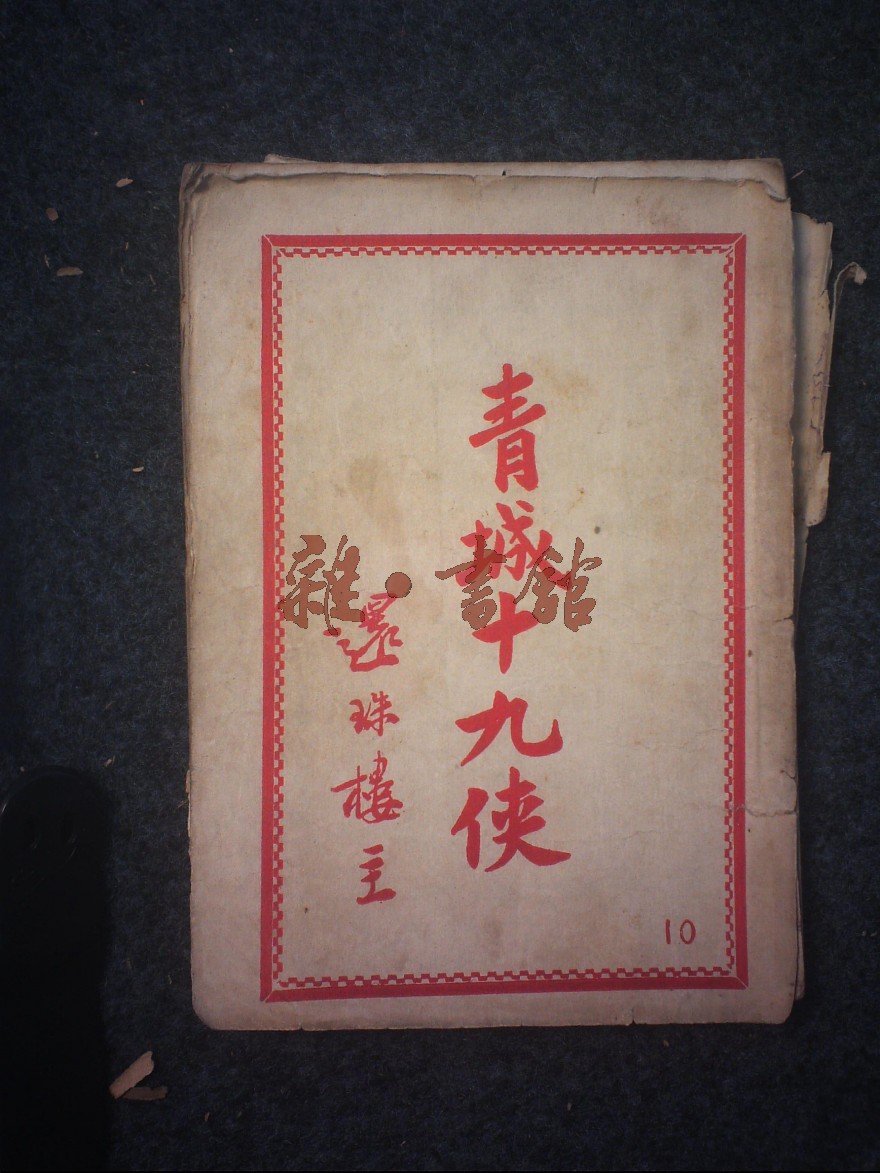 青城十九侠
還珠樓主
10
雜·書館